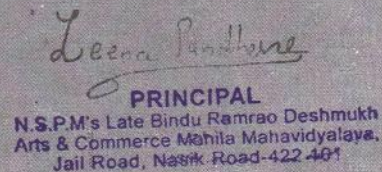 Leena Pandhare
PRINCIPAL
N.S.P.M's Late Bindu Ramrao Deshmukh
Arts & Commerce Mahila Mahavidyalaya,
Jail Road, Nasik Road-422 401